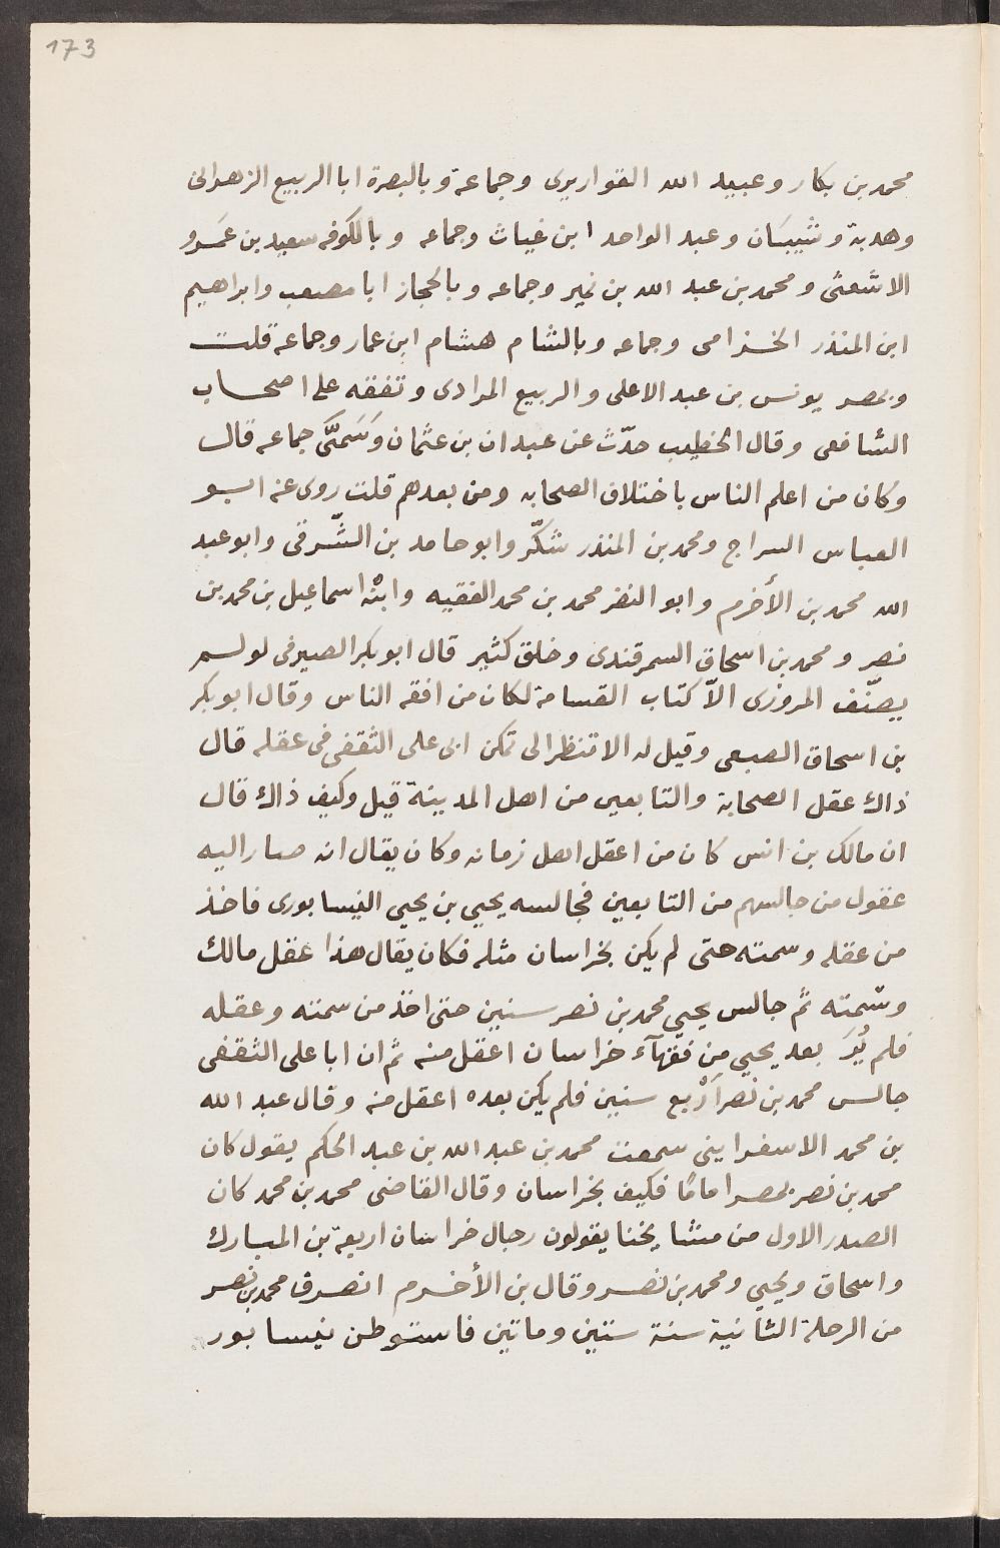 173
محمد بن بكار وعبيد الله القواريرى وجماعة وبالبصرة ابا الربيع الزهرانى
وهدبة وشيبَان وعبد الواحد ابن غياث وجماعه وبالكوفه سعيد بن عَمرو
الاشعثى ومحمد بن عبد الله بن نمير وجماعه وبالحجاز ابا مصعب وابراهيم
ابن المنذر الخزامى وجماعه وبالشام هشام ابن عمار وجماعة قلت
وبمصر يونس بن عبد الاعلى والربيع المرادى وتفقه على اصحاب
الشافعى وقال الخطيب حدّث عن عبدان بن عثمان وَسَمَّى جماعه قال
وكان من اعلم الناس باختلاف الصحابه ومن بعدهم قلت روى عنه ابو
العباس السراج ومحمد بن المنذر شكّر وابو حامد بن الشّرقى وابو عبد
الله محمد بن الأخرم وابو النضر محمد بن محمد الفقيه وابنْه اسماعيل بن محمد بن
نصر ومحمد بن اسحاق السمرقندى وخلق كثير قال ابو بكر الصيرفى لو لم
يصنّف المروزى الاّ كتاب القسامة لكان من افقه الناس وقال ابو بكر
بن اسحاق الصبعى وقيل له الا تنظر الى تمكن ابى على الثقفى فى عقله قال
ذاك عقل الصحابة والتابعين من اهل المدينة قيل وكيف ذاك قال
ان مالك بن انس كان من اعقل اهل زمانه وكان يقال انه صار اليه
عقول من جالسهم من التابعين فجالسه يحيي بن يحيي النيسابورى فاخذ
من عقله وسمته حتى لم يكن بخراسان مثله فكان يقال هذا عقل مالك
وسمته ثم جالس يحيي محمد بن نصر سنين حتى اخذ من سمته وعقله
فلم يُرَ بعد يحيي من فقهآء خراسان اعقل منه ثم ان ابا على الثقفى
جالس محمد بن نصر اَرْبع سنين فلم يكن بعده اعقل منه وقال عبد الله
بن محمد الاسفراينى سمعت محمد بن عبد الله بن عبد الحكم يقول كان
محمد بن نصر بمصر امامًا فكيف بخراسان وقال القاضى محمد بن محمد كان
الصدر الاول من مشايخنا يقولون رجال خراسان اربعة بن المبارك
واسحاق ويحيي ومحمد بن نصر وقال بن الأخرم انصرف محمد بن نصر
من الرحلة الثانية سنة ستين وماتين فاستوطن نيسابور